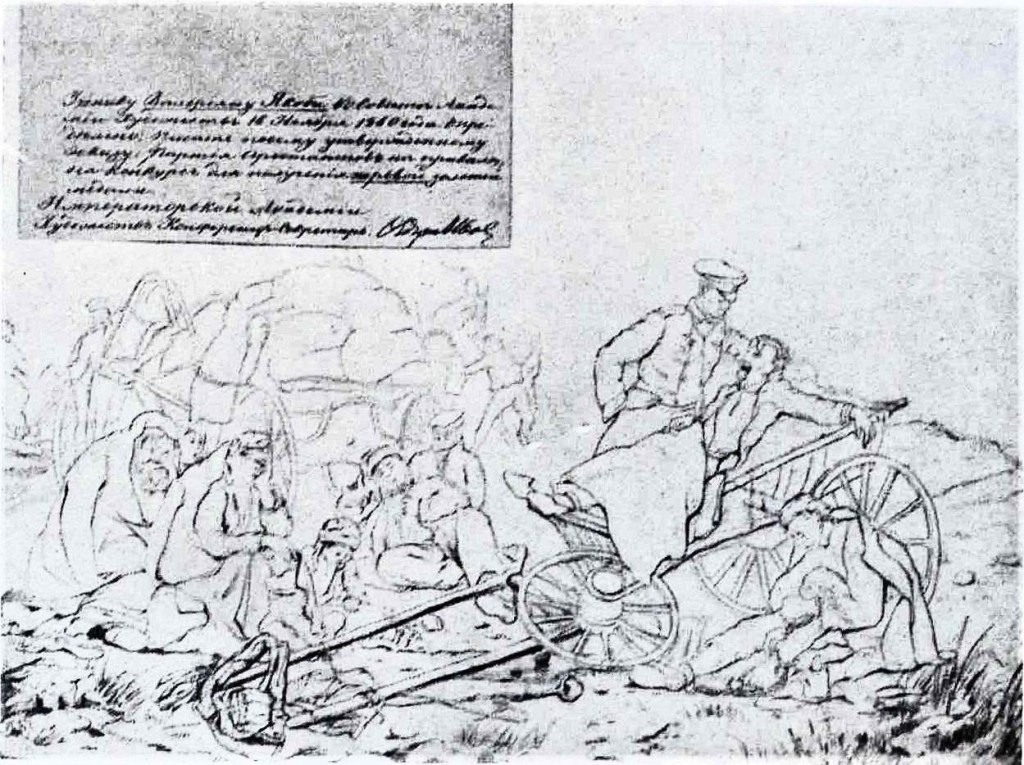 Ученику Валерiяну Якоби. Въ Совѣтѣ Академiи Художествъ 16 Ноября 1860 года опре-
дѣлено: писать по сему утвержденному
эскизу: Партiя Арестантовъ на привалѣ,
на конкурсъ для полученiя первой золотой
медали
Императорской Академiи
Художествъ Конференцъ-Секретарь